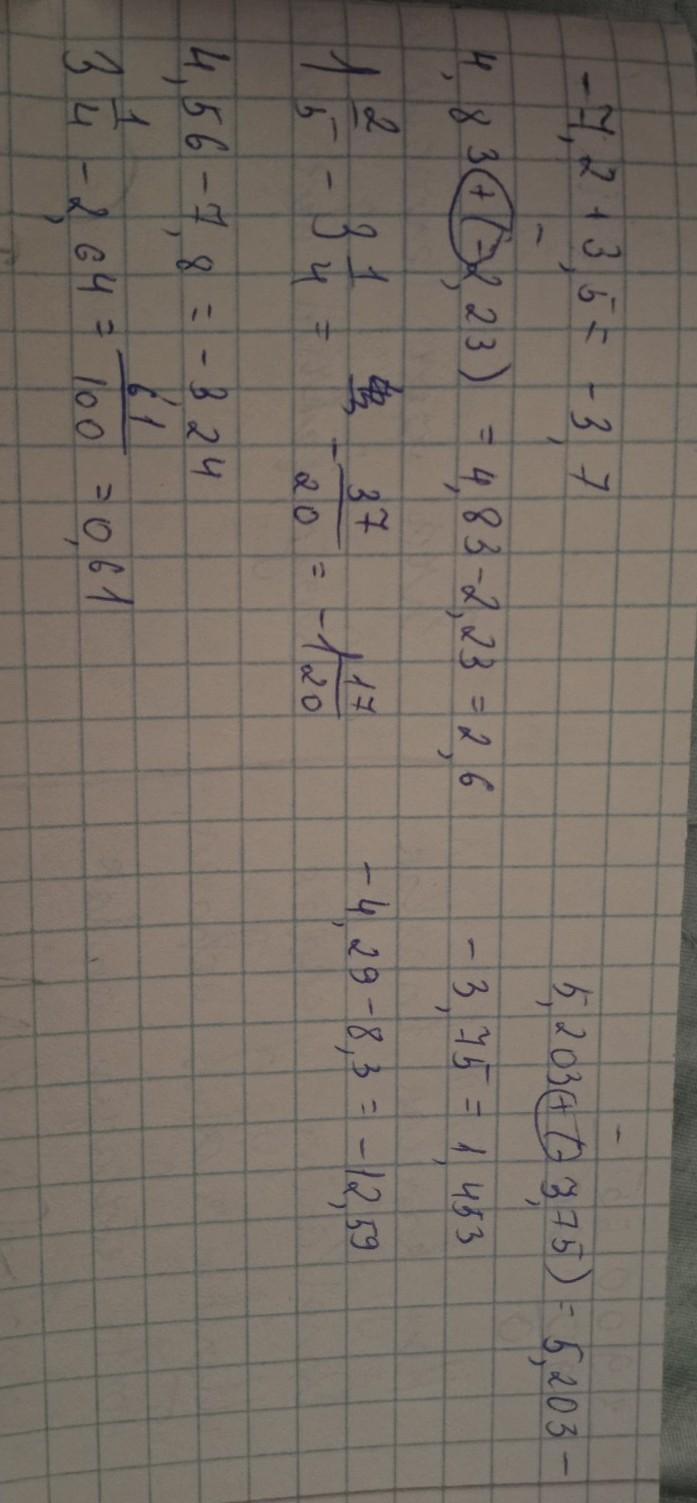 -7,2+3,5= -3,7
4,83+(-2,23) = 4,83-2,23=2,6
1 2/5 - 3 1/4 = - 37/20 = -1 17/20
4,56-7,8=-3 24
3 1/4 - 2,64 = 61/100 = 0,61
5,203+(-3,75)=5,203-
-3,75=1,453
-4,29-8,3=-12,59